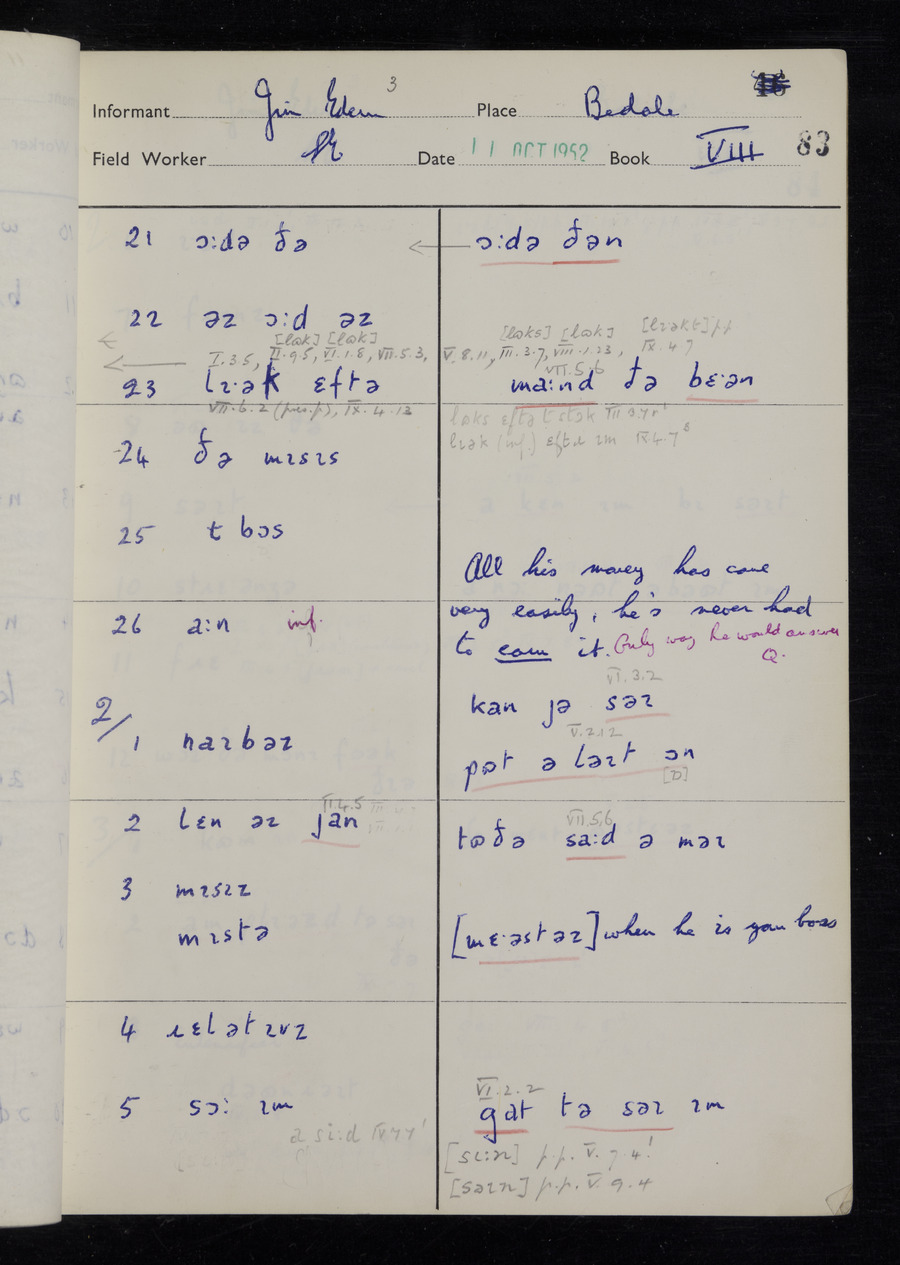 3
Informant Jim Eden Place Bedale
Field Worker Date 11 OCT 1952 Book VIII 83
21 ɔ:də ðə ← ɔ:də ðən
22 əz ɔ:d əz
[lɷk] [lɷk] [lɷks] [lɷk] [lɪəkt] pp
I.3.5, II.9.5, VI.1.8, VII.5.3, V.8.11, III.3.7, VIII.1.23, IX.4.7
VII.5.6
23 lɪ·ək ɛftə ma:nd ðə bɛ·ən
VII.6.2 (pres.p), IX.4.13
lɷks ɛftə t stɷk
lɪək (inf.) ɛftəɹ ɪm IX.4.7
24 ðə mɪsɪs
25 t bɔs
All his money has come
very easily, he's never had
26 a:n inf. to earn it. Only way he would answer
Q.
VI.3.2
kan jə səɪ
2/
1 naɪbəɪ
V.2.12
pɷt ə ləɪt ɔn
[ɒ]
II.4.5
2 lɛn əɪ jan
VII.5,6
tɷðə sa:d ə məɪ
3 mɪsɪz
mɪstə
[mɛ·əstəɪ] when he is your boss
4 ɹɛlətɪvz
VI.2.2
5 sɔ: ɪm gat tə səɪ ɪm
[si:n] p.p. V.7.4!
[səɪn] p.p. V.9.4